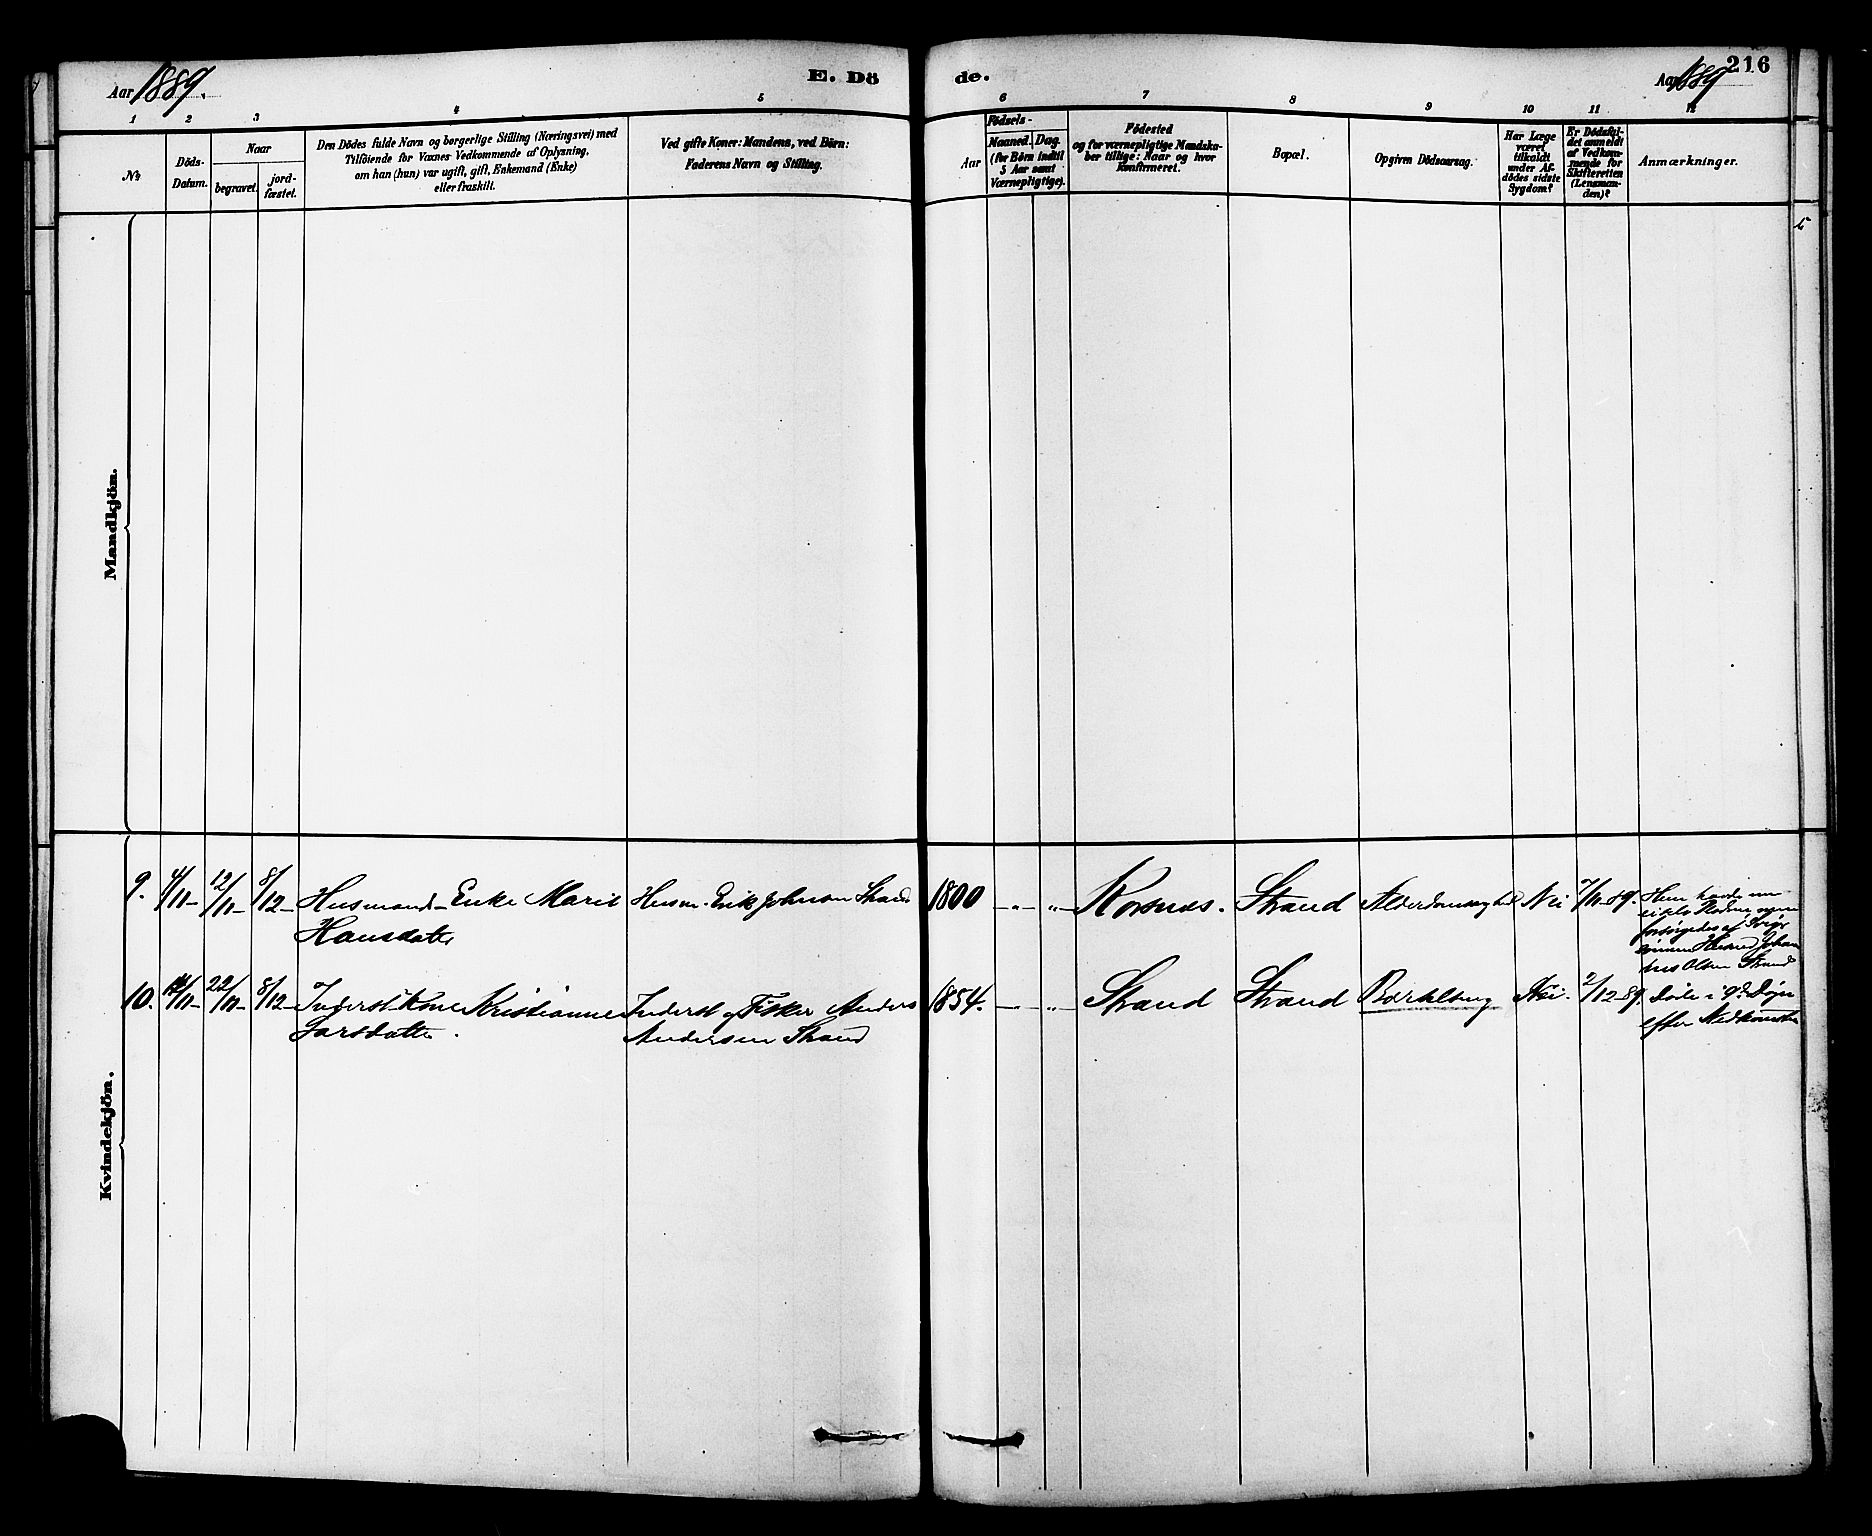 Aar 1889.
E. Dö
de.
Aar 1889
216
1 2 3 4 5 6 7 8 9 10 11 12
No
Döds-
Datum.
Naar
begravet.
jord-
fæstet.
Den Dödes fulde Navn og borgerlige Stilling (Næringsvei) med
Tilföiende for Voxnes Vedkommende af Oplysning,
om han (hun) var ugift, gift, Enkemand (Enke)
eller fraskilt.
Ved gifte Koner: Mandens, ved Börn:
Faderens Navn og Stilling.
Födsels-
Aar
Maaned. Dag.
(for Börn indtil
5 Aar samt
Værnepligtige).
Födested
og for værnepligtige Mandska-
ber tillige: Naar og hvor
konfirmeret.
Bopæl.
Opgiven Dödsaarsag.
Har Læge
været
tilkaldt
under Af-
dödes sidste
Sygdom?
Er Dödsfal-
det anmeldt
af Vedkom-
mende for
Skifteretten
(Lensman-
den)?
Anmærkninger.
Mandkjön.
Kvindekjön.
9. 4/11- 12/11- 8/12- Husmands-Enke Marit Husm. Erik Johnson Strand 1800 - " - " - Korsnæs. Strand Alderdomssvaghed Nei 7/11-89.
Hansdatter
forsörgedes af
Olsen Strand
10. 14/11- 22/11- 8/12- Inderst-Kone Kristianne Inderst og Fisker Anders 1854. - " - Strand Strand Barselseng Nei. 2/12-89. Döde i 9de Dögn
Larsdatter. Andersen Strand efter Nedkomsten